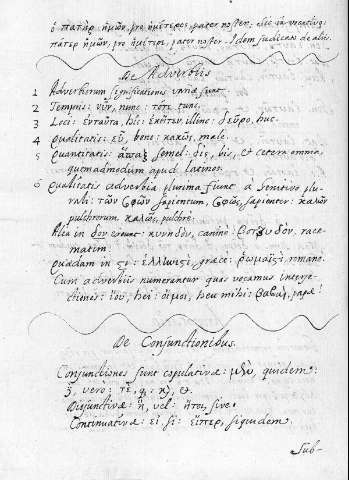 ὁ πατὴρ ἡμῶν, pro ἡμέτερος, pater noster. sic in vocativo:
πάτερ ἡμῶν, pro ἡμέτερε, pater noster. Idem judicium de aliis.
De Adverbiis
1 Adverbiorum significationes variæ sunt.
2 Temporis: νῦν, nunc: τότε tunc.
3 Loci: ἐνταῦτα, hîc: ἐκεῖθεν illinc: δεῦρο, huc.
4 Qualitatis: εὖ, bene: κακῶς, male.
5 Quantitatis: ἅπαξ semel: δὶς, bis, et cetera omnia,
quemadmodum apud Latinos.
6 Qualitatis adverbia plurima fiunt a genitivo plu-
rali: τῶν σοφῶν sapientum, σοφῶς, sapienter: καλῶν
pulchrorum καλῶς, pulchrè.
Alia in δον exeunt: κυνηδὸν, canino: βοτρυδον, race-
matim.
Quædam in ςι: ἑλληνιςὶ, græce: ῥωμαϊςὶ, romane.
Cum adverbiis numerentur quas vocamus interje-
ctiones: ἰου, hei: οἴμοι, heu mihi: βαβαὶ, papæ!
De Conjunctionibus.
Conjunctiones sunt copulativæ: μὲν, quidem:
δὲ, verò: τὲ, q;: καὶ, &.
Disjunctivæ: ἢ, vel: ἤτοι, sive.
Continuativæ: εἰ, si: εἴπερ, siquidem.
Sub-